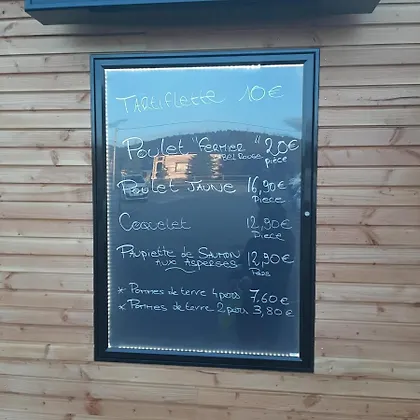 TARTIFLETTE 10€
POULET "FERMIER" 20€
BEL ROUGE PIÈCE
POULET JAUNE 16,90€
PIECE
COQUELET 12,90€
PIECE
PAUPIETTE de SAUMON 12,90€
AUX ASPERGES
* POMMES de terre 4 pers 7,60€
* POMMES de terre 2 pers 3,80€